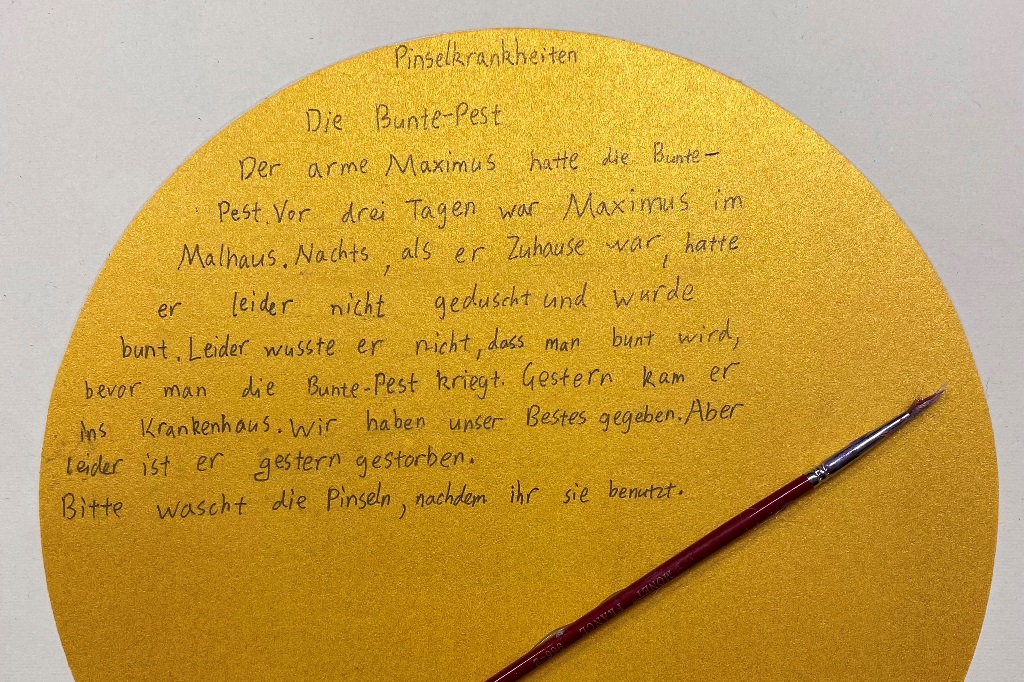 Pinselkrankheiten
Die Bunte-Pest
Der arme Maximus hatte die Bunte-
Pest. Vor drei Tagen war Maximus im
Malhaus. Nachts, als er Zuhause war, hatte
er leider nicht geduscht und wurde
bunt. Leider wusste er nicht, dass man bunt wird,
bevor man die Bunte-Pest kriegt. Gestern kam er
ins Krankenhaus. Wir haben unser Bestes gegeben. Aber
leider ist er gestern gestorben.
Bitte wascht die Pinseln, nachdem ihr sie benutzt.